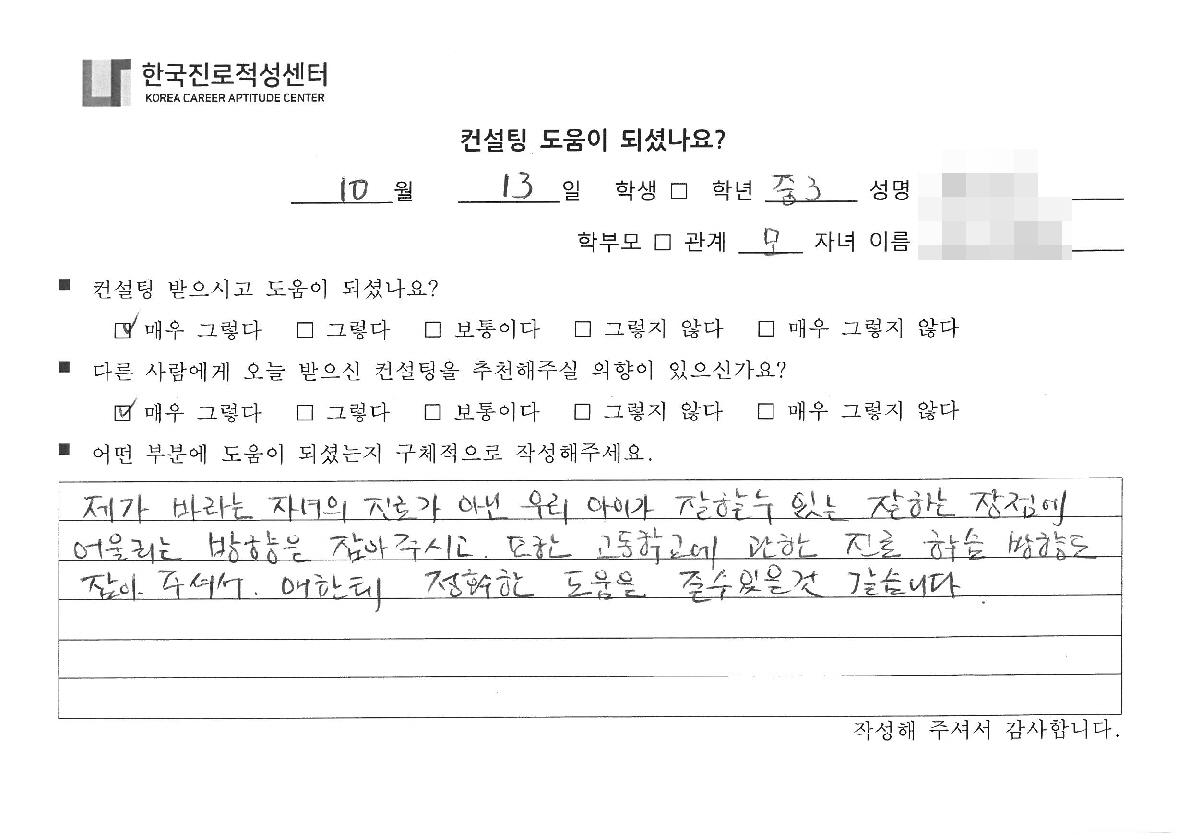 한국진로적성센터
KOREA CAREER APTITUDE CENTER
컨설팅 도움이 되셨나요?
10 월 13 일 학생 □ 학년 중3 성명
학부모 □ 관계 모 자녀 이름
■ 컨설팅 받으시고 도움이 되셨나요?
☑ 매우 그렇다 □ 그렇다 □ 보통이다 □ 그렇지 않다 □ 매우 그렇지 않다
■ 다른 사람에게 오늘 받으신 컨설팅을 추천해주실 의향이 있으신가요?
☑ 매우 그렇다 □ 그렇다 □ 보통이다 □ 그렇지 않다 □ 매우 그렇지 않다
■ 어떤 부분에 도움이 되셨는지 구체적으로 작성해주세요.
제가 바라는 자녀의 진로가 아닌 우리 아이가 잘할수 있는 잘하는 장점에
어울리는 방향을 잡아주시고. 또한 고등학교에 관한 진로 학습 방향도
잡아 주셔서. 애한테 정확한 도움을 줄수있을것 같습니다.
작성해 주셔서 감사합니다.